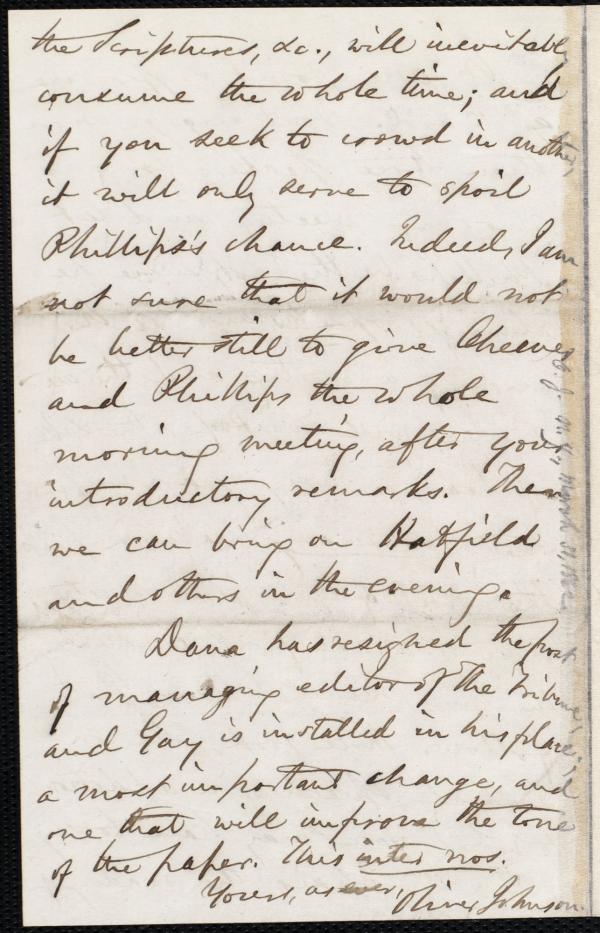 the Scriptures, &c., will inevitably
consume the whole time; and
if you seek to crowd in another,
it will only serve to spoil
Phillips's chance. Indeed, I am
not sure that it would not
be better still to give Cheever
and Phillips the whole
morning meeting, after your
introductory remarks. Then
we can bring on Hatfield
and others in the evening.
Dana has resigned the post
of managing editor of The Tribune,
and Gay is installed in his place;
a most important change, and
one that will improve the tone
of the paper. This inter nos.
Yours, as ever, Oliver Johnson.